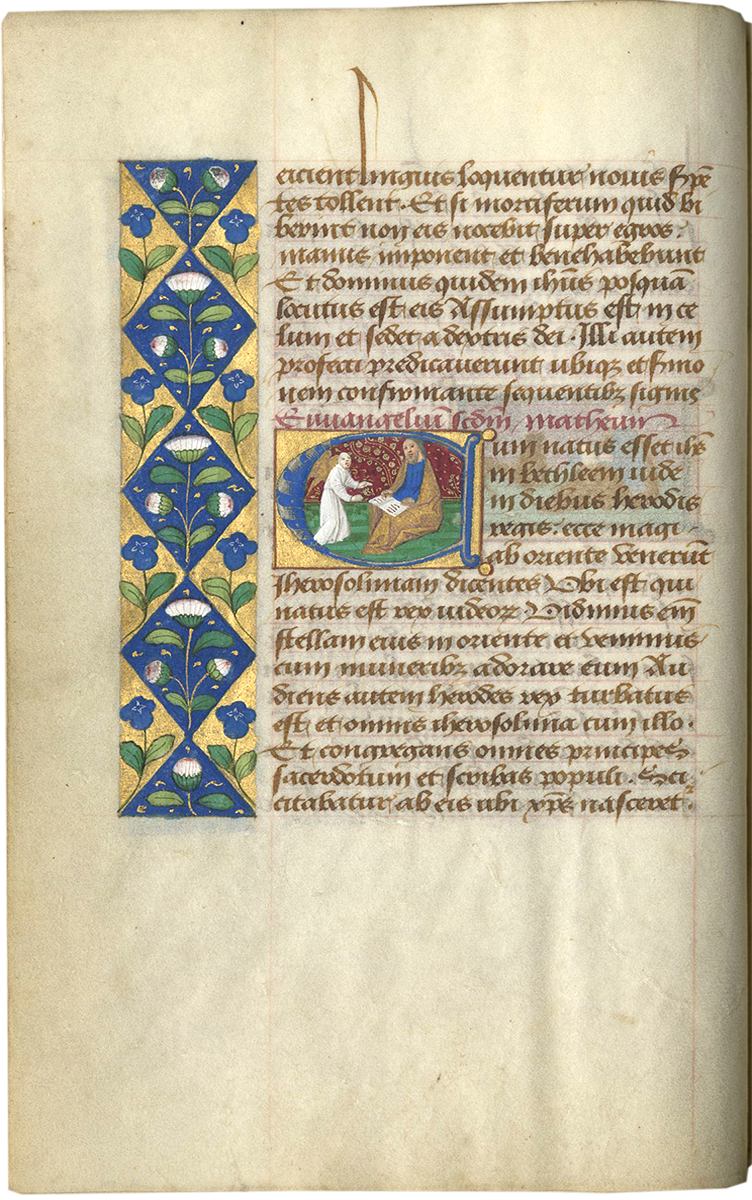 eicient linguis loquentur nouis Ser̄pē
tes tollent · Et si mortiferum quid bi
berint non eis nocebit super egros ·
manus imponent et benehabebunt
Et dominus quidem ih̄us posquā
locutus est eis Assumptus est in ce
lum et sedet a dextris dei · Illi autem
profecti predicauerunt ubiqz et s̄mo
nem confirmante sequentibz signis
Euuangeliū scd̄m matheum
Cum natus esset ih̄s
in bethleem iude
in diebus herodis
regis · ecce magi
ab oriente venerūt
Iherosolimam dicentes Vbi est qui
natus est rex iudeoꝝ Vidimus em̄
stellam eius in oriente et venimus
cum muneribz adorare eum Au
diens autem herodes rex turbatus
est et omnis iherosolima cum illo ·
Et congregans omnes principes
sacerdotum et scribas populi · Sci
citabatur ab eis ubi xp̄s nasceret᷑